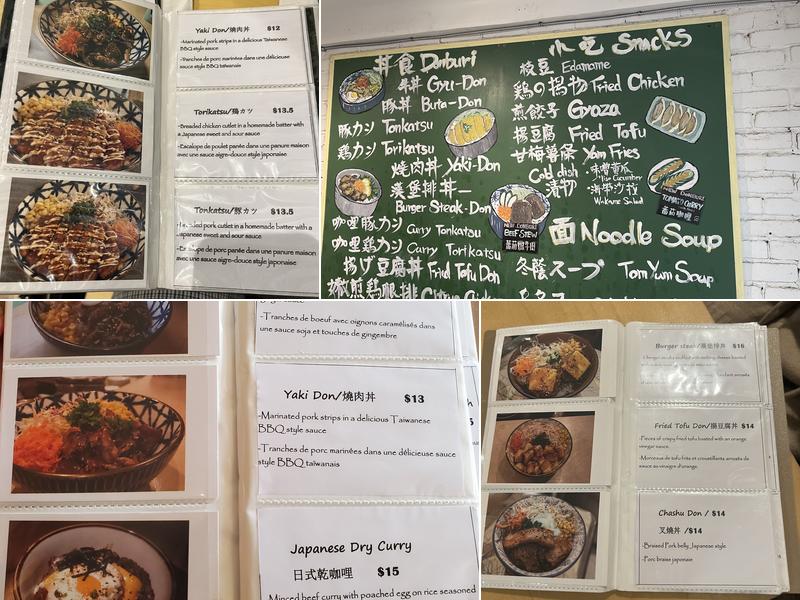 Yaki Don/燒肉丼 $12
-Marinated pork strips in a delicious Taiwanese
BBQ style sauce
-Tranches de porc marinées dans une délicieuse
sauce style BBQ taïwanais
Torikatsu/鶏カツ $13.5
-Breaded chicken cutlet in a homemade batter with
a Japanese sweet and sour sauce
-Escalope de poulet panée dans une panure maison
avec une sauce aigre-douce style japonaise
Tonkatsu/豚カツ $13.5
-Breaded pork cutlet in a homemade batter with a
Japanese sweet and sour sauce
-Escalope de porc panée dans une panure maison
avec une sauce aigre-douce style japonaise
丼食 Donburi
牛丼 Gyu-Don
豚丼 Buta-Don
豚カツ Tonkatsu
鶏カツ Torikatsu
燒肉丼 Yaki-Don
漢堡排丼
Burger Steak-Don
咖哩豚カツ Curry Tonkatsu
咖哩鶏カツ Curry Torikatsu
揚げ豆腐丼 Fried Tofu Don
小吃 Snacks
枝豆 Edamame
鶏の揚物 Fried Chicken
煎餃子 Gyoza
揚豆腐 Fried Tofu
甘梅薯條 Yam Fries
Cold dish
漬物
Miso Cucumber
Wakame Salad
NEW DONBURI
TOMATO CURRY
蕃茄咖喱
NEW DONBURI
BEEF STEW
蕃茄燉牛肉
面 Noodle Soup
冬蔭スープ Tom Yum Soup
-Tranches de boeuf avec oignons caramélisés dans
une sauce soja et touches de gingembre
Yaki Don/燒肉丼 $13
-Marinated pork strips in a delicious Taiwanese
BBQ style sauce
-Tranches de porc marinées dans une délicieuse sauce
style BBQ taïwanais
Japanese Dry Curry
日式乾咖哩 $15
-Minced beef curry with poached egg on rice seasoned
Burger steak/漢堡排丼 $16
Fried Tofu Don/揚豆腐丼 $14
-Pieces of crispy fried tofu basted with an orange
vinegar sauce.
-Morceaux de tofu frits et croustillants arrosés de
sauce au vinaigre d'orange.
Chashu Don / $14
叉燒丼 /$14
-Braised Pork belly, Japanese style
-Porc braisé japonais